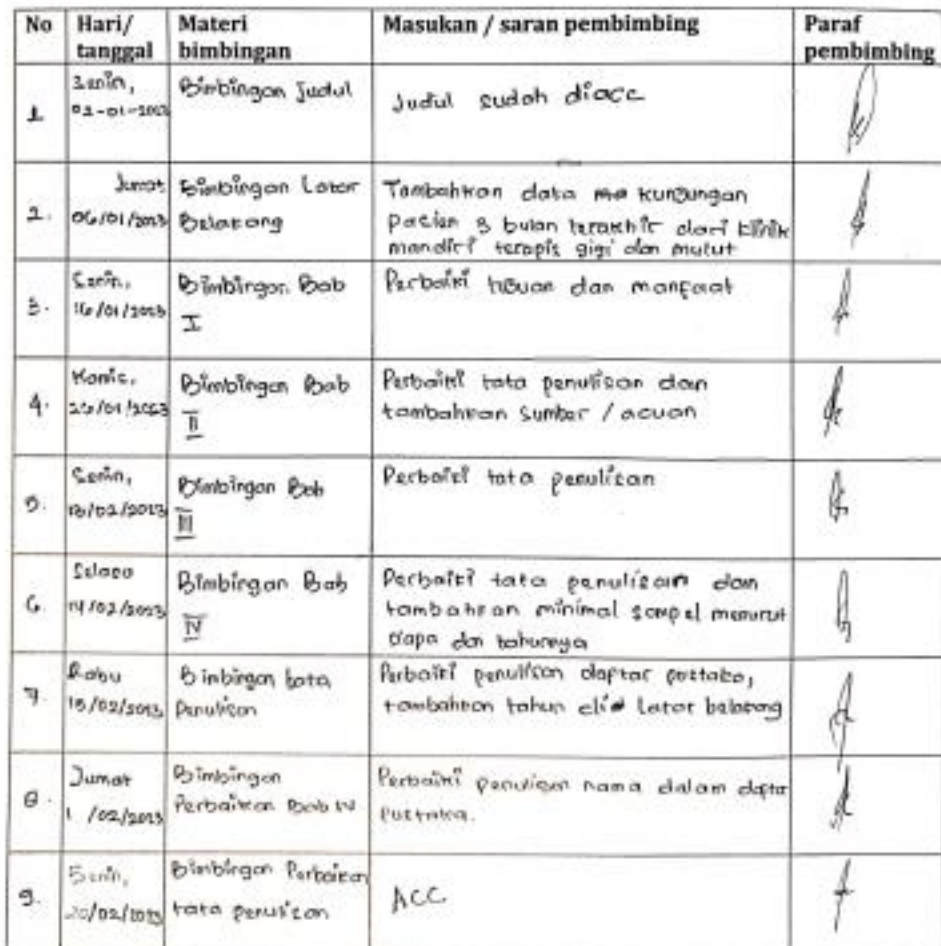 No Hari/ tanggal Materi bimbingan Masukan / saran pembimbing Paraf pembimbing
1 Senin, 02-01-2023 Bimbingan Judul Judul sudah diacc
2. Jumat 06/01/2023 Bimbingan Latar Belakang Tambahkan data kunjungan pasien 3 bulan terakhir dari klinik mandiri terapis gigi dan mulut
3. Senin, 16/01/2023 Bimbingan Bab I Perbaiki tujuan dan manfaat
4. Kamis, 26/01/2023 Bimbingan Bab II Perbaiki tata penulisan dan tambahkan sumber / acuan
5. Senin, 13/02/2023 Bimbingan Bab III Perbaiki tata penulisan
6. Selasa 14/02/2023 Bimbingan Bab IV Perbaiki tata penulisan dan tambahkan minimal sampel menurut siapa dan tahunnya
7. Rabu 15/02/2023 Bimbingan tata Penulisan Perbaiki penulisan daftar pustaka, tambahkan tahun di latar belakang
8. Jumat /02/2023 Bimbingan Perbaikan Bab IV Perbaiki penulisan nama dalam daftar Pustaka.
9. Senin, 20/02/2023 Bimbingan Perbaikan tata penulisan ACC